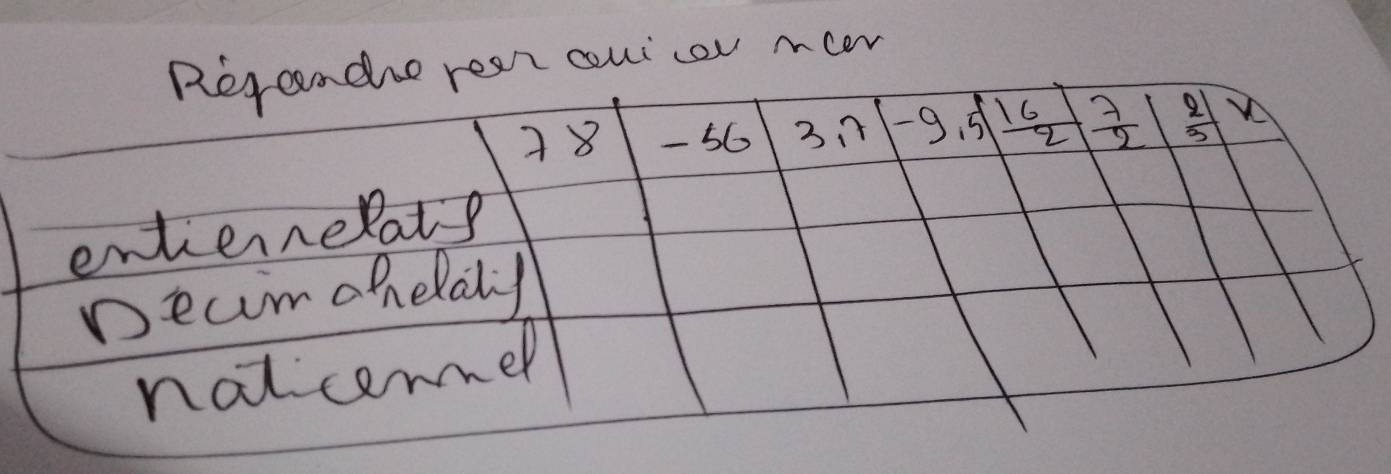 Répondre par oui ou non
78 -56 3,7 -9,5 16/2 7/2 2/3
entier relatif
Décimal relatif
rationnel